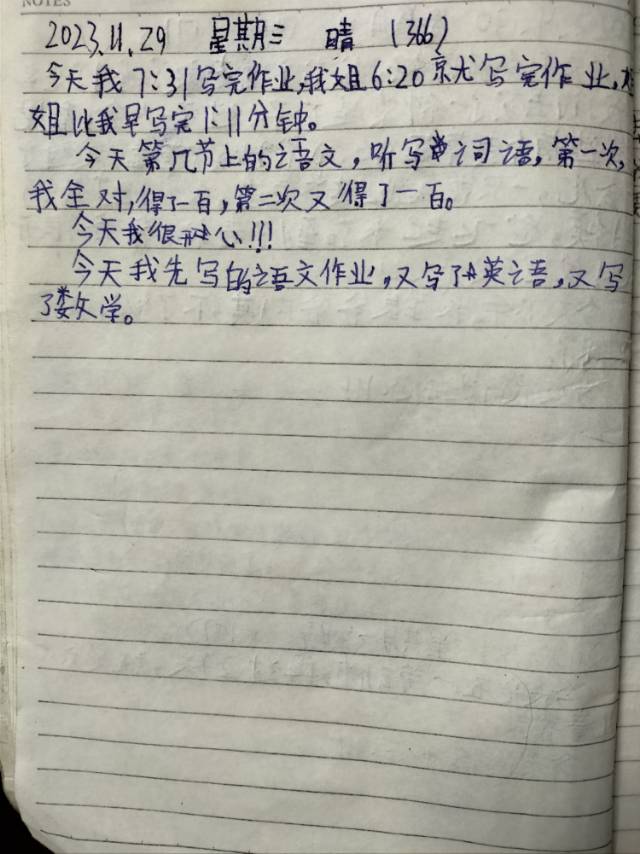 NOTES
2023.11.29 星期三 晴 (366)
今天我7:31写完作业,我姐6:20就写完作业,
姐比我早写完1:11分钟。
今天第几节上的语文,听写词语,第一次,
我全对,得了一百,第二次又得了一百。
今天我很开心!!!
今天我先写的语文作业,又写了英语,又写
了数学。